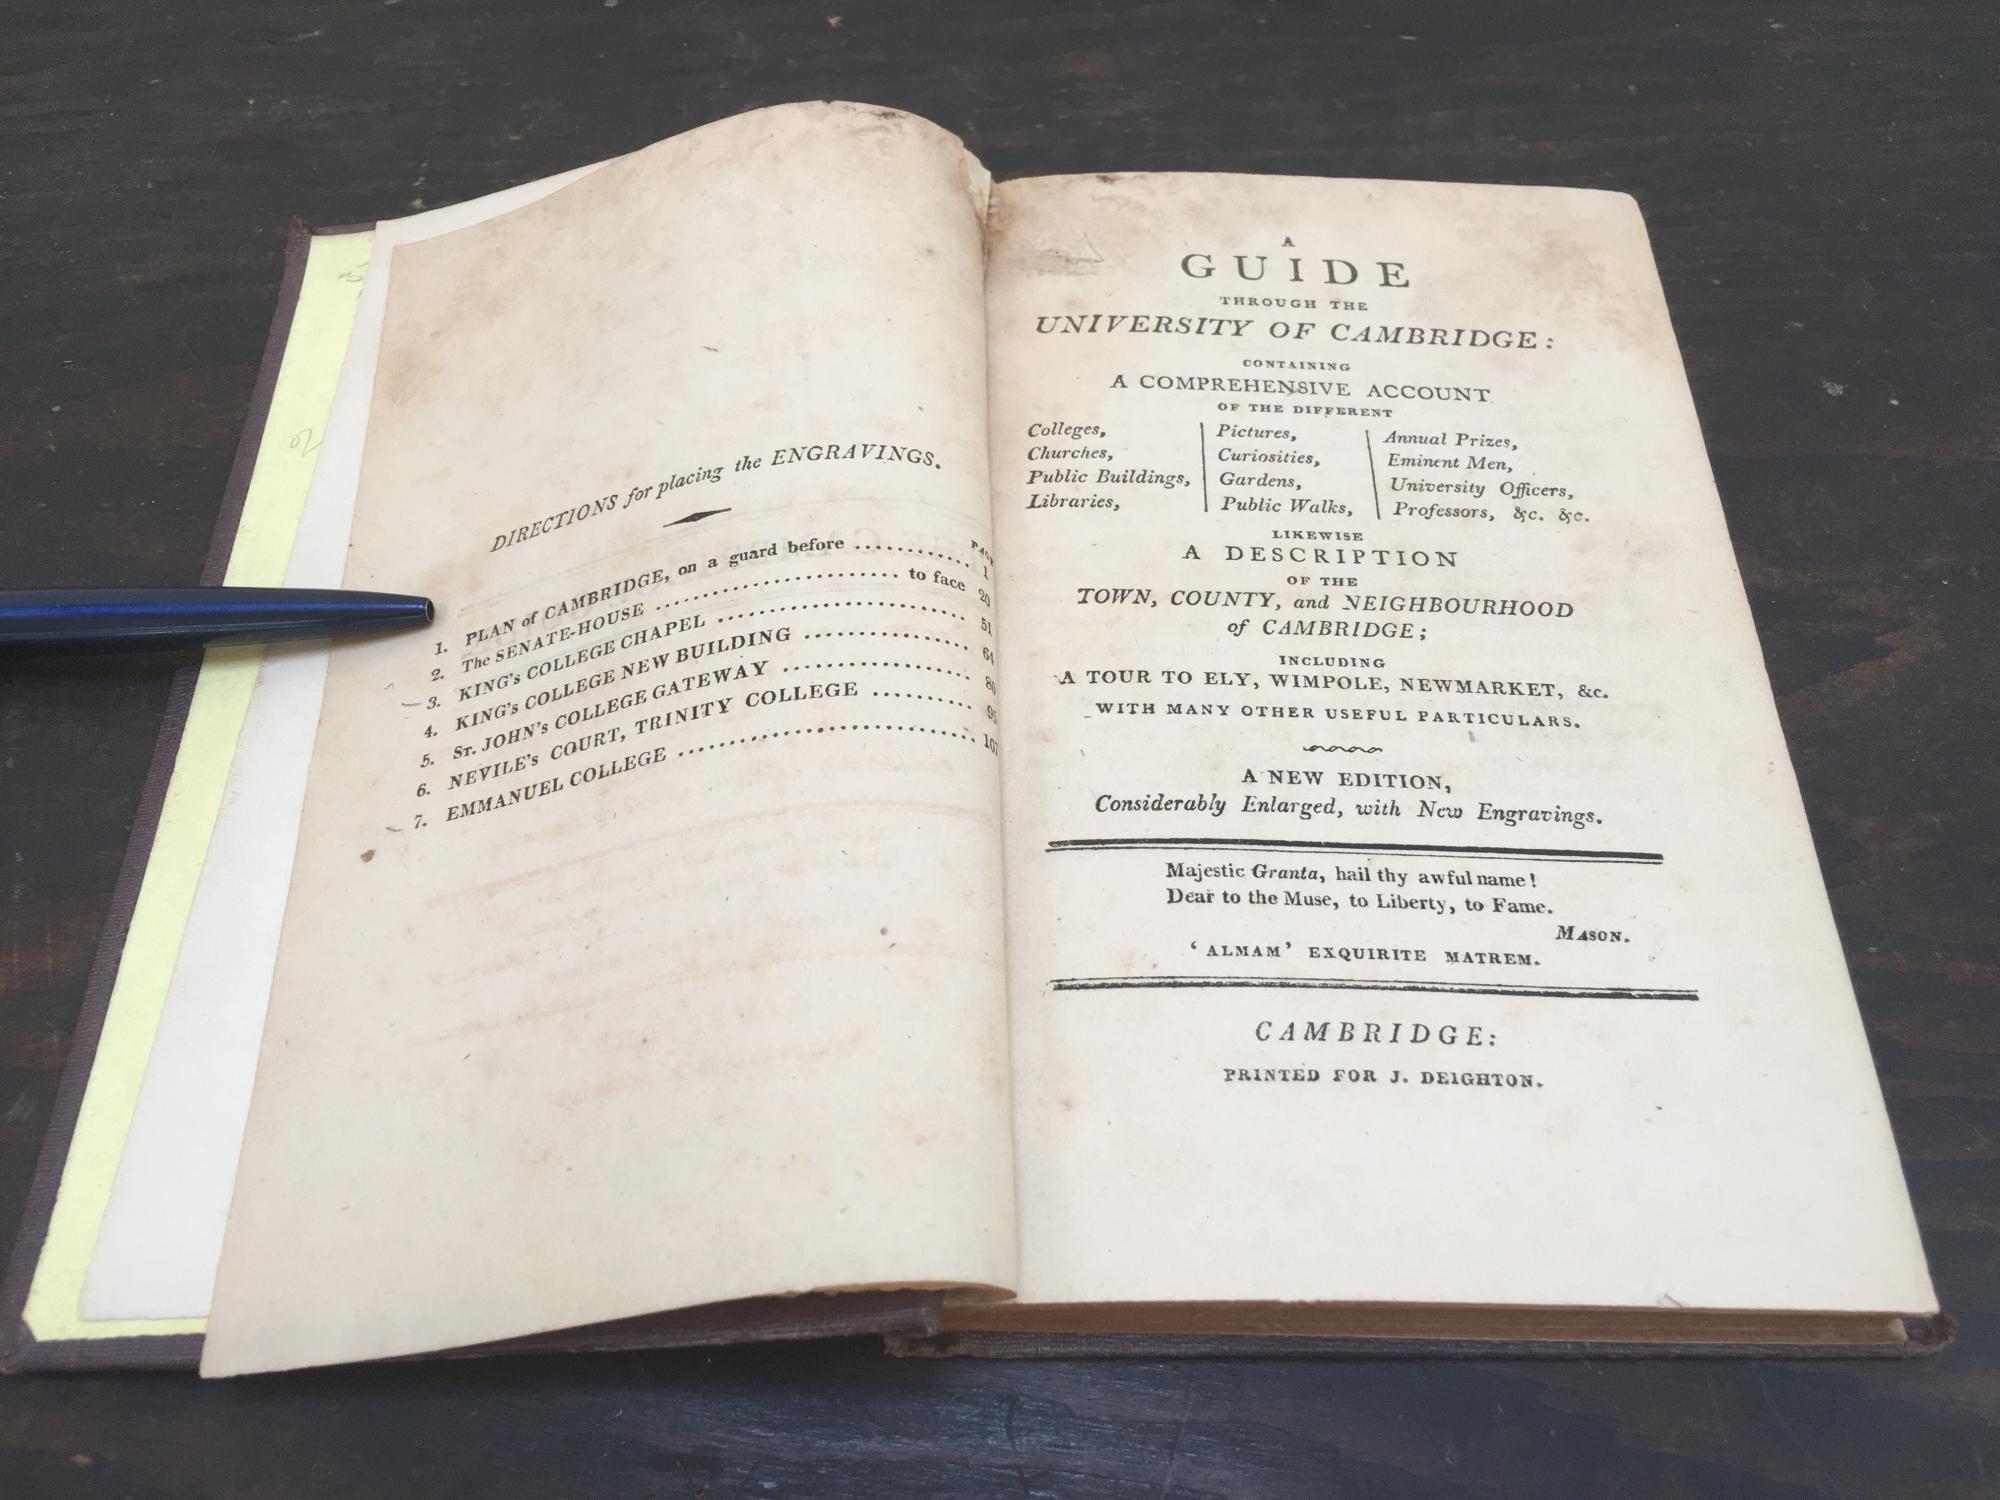 DIRECTIONS for placing the ENGRAVINGS.
PAGE
1. PLAN of CAMBRIDGE, on a guard before ........... 1
2. The SENATE-HOUSE ...................... to face 20
3. KING's COLLEGE CHAPEL ...................... 51
4. KING's COLLEGE NEW BUILDING .............. 64
5. St. JOHN's COLLEGE GATEWAY ................ 80
6. NEVILE's COURT, TRINITY COLLEGE ......... 95
7. EMMANUEL COLLEGE .......................... 107
A
GUIDE
THROUGH THE
UNIVERSITY OF CAMBRIDGE:
CONTAINING
A COMPREHENSIVE ACCOUNT
OF THE DIFFERENT
Colleges,
Churches,
Public Buildings,
Libraries,
Pictures,
Curiosities,
Gardens,
Public Walks,
Annual Prizes,
Eminent Men,
University Officers,
Professors, &c. &c.
LIKEWISE
A DESCRIPTION
OF THE
TOWN, COUNTY, and NEIGHBOURHOOD
of CAMBRIDGE;
INCLUDING
A TOUR TO ELY, WIMPOLE, NEWMARKET, &c.
WITH MANY OTHER USEFUL PARTICULARS.
A NEW EDITION,
Considerably Enlarged, with New Engravings.
Majestic Granta, hail thy awful name!
Dear to the Muse, to Liberty, to Fame.
MASON.
‘ALMAM’ EXQUIRITE MATREM.
CAMBRIDGE:
PRINTED FOR J. DEIGHTON.